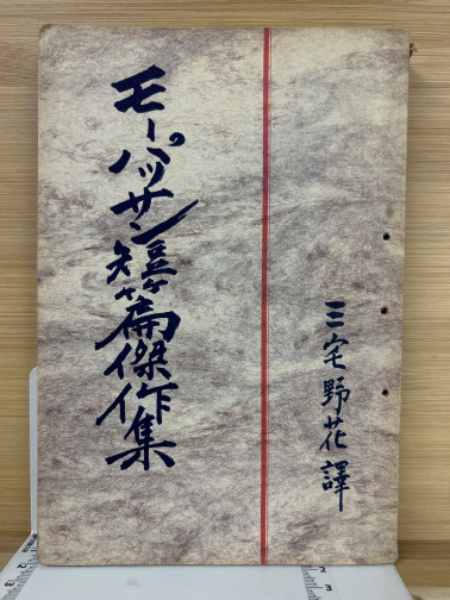 三宅野花譯
モーパッサン短篇傑作集
2
3
3
2